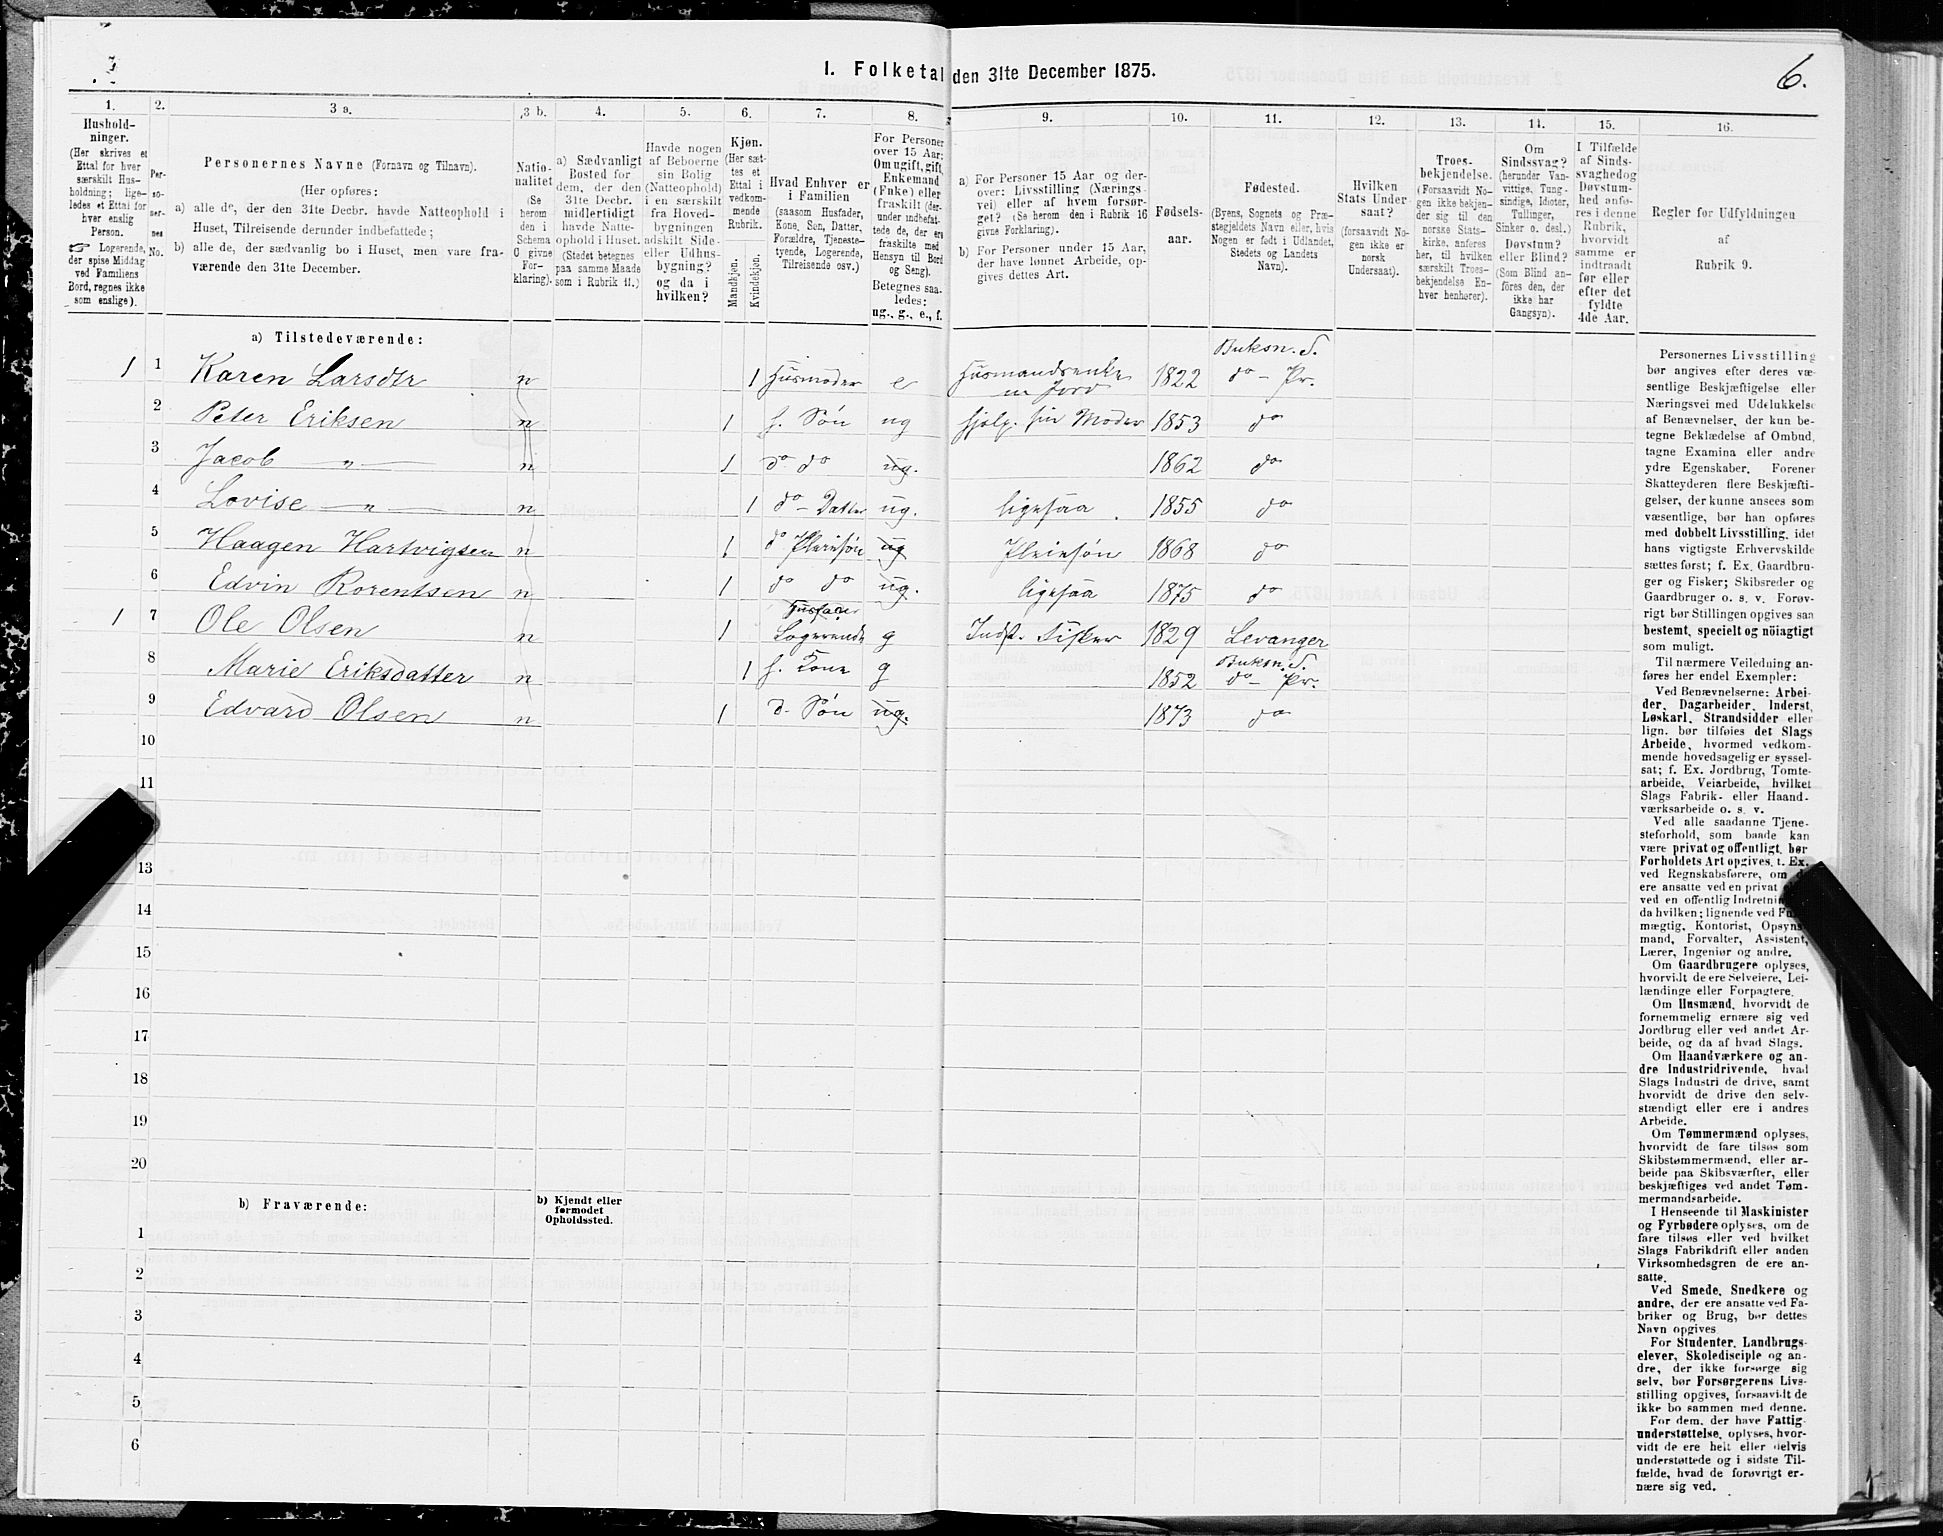 I. Folketal den 31te December 1875.
6.
1.
2.
3 a.
3 b.
4.
5.
6.
7.
8.
9.
10.
11.
12.
13.
14.
15.
16.
Hushold-
ninger.
(Her skrives et
Ettal for hver
særskilt Hus-
holdning; lige-
ledes et Ettal for
hver enslig
Person.
☞ Logerende,
der spise Middag
ved Familiens
Bord, regnes ikke
som enslige).
Per-
so-
ner-
nes
No.
Personernes Navne (Fornavn og Tilnavn).
(Her opføres:
a) alle de, der den 31te Decbr. havde Natteophold i
Huset, Tilreisende derunder indbefattede;
b) alle de, der sædvanlig bo i Huset, men vare fra-
værende den 31te December.
Natio-
nalitet
(Se
herom
den i
Schema
O givne
For-
klaring).
a) Sædvanligt
Bosted for
dem, der den
31te Decbr.
midlertidigt
havde Natte-
ophold i Huset.
(Stedet betegnes
paa samme Maade
som i Rubrik 11.)
Havde nogen
af Beboerne
sin Bolig
(Natteophold)
i en særskilt
fra Hoved-
bygningen
adskilt Side-
eller Udhus-
bygning?
og da i
hvilken?
Kjøn.
(Her sæt-
tes et
Ettal i
vedkom-
mende
Rubrik.
Mandkjøn.
Kvindekjøn.
Hvad Enhver er
i Familien
(saasom Husfader,
Kone, Søn, Datter,
Forældre, Tjeneste-
tyende, Logerende,
Tilreisende osv.)
For Personer
over 15 Aar:
Om ugift, gift,
Enkemand
(Enke) eller
fraskilt (der-
under indbefat-
tede de, der ere
fraskilte med
Hensyn til Bord
og Seng).
Betegnes saa-
ledes:
ug., g., e., f.
a) For Personer 15 Aar og der-
over: Livsstilling (Nærings-
vei) eller af hvem forsør-
get? (Se herom den i Rubrik 16
givne Forklaring).
b) For Personer under 15 Aar,
der have lønnet Arbeide, op-
gives dettes Art.
Fødsels-
aar.
Fødested.
(Byens, Sognets og Præ-
stegjeldets Navn eller, hvis
Nogen er født i Udlandet,
Stedets og Landets
Navn).
Hvilken
Stats Under-
saat?
(forsaavidt No-
gen ikke er
norsk
Undersaat).
Troes-
bekjendelse.
(Forsaavidt No-
gen ikke bekjen-
der sig til den
norske Stats-
kirke, anføres
her, til hvilken
særskilt Troes-
bekjendelse En-
hver henhører).
Om
Sindssvag?
(herunder Van-
vittige, Tung-
sindige, Idioter,
Tullinger,
Sinker o. desl.)
Døvstum?
eller Blind?
(Som Blind an-
føres den, der
ikke har
Gangsyn).
I Tilfælde
af Sinds-
svaghed og
Døvstum-
hed anfø-
res i denne
Rubrik,
hvorvidt
samme er
indtraadt
før eller
efter det
fyldte
4de Aar.
Regler før Udfyldningen
af
Rubrik 9.
a) Tilstedeværende:
Buksn. S.
1 1 Karen Larsdtr n 1 Husmoder e Husmandsenke m Jord 1822 do – Pr.
2 Peter Eriksen n 1 h. Søn ug hjelp. sin Moder 1853 do
3 Jacob — „ — n 1 do do ug. 1862 do
4 Lovise — „ — n 1 do – Datter ug. ligesaa . 1855 do
5 Haagen Hartvigsen n 1 do Pleiesøn ug Pleiesøn 1868 do
6 Edvin Rorentsen n 1 do do ug. ligesaa 1875 do
Husfader
1 7 Ole Olsen n 1 Logerende g Indst. Fisker 1829 Levanger
Buksn. S.
8 Marie Eriksdatter n 1 h. Kone g 1852 do – Pr.
9 Edvard Olsen n 1 d. Søn ug. 1873 do
10
11
13
14
15
16
17
18
19
20
b) Fraværende:
b) Kjendt eller
formodet
Opholdssted.
1
2
3
4
5
6
Personernes Livsstilling
bør angives efter deres væ-
sentlige Beskjæftigelse eller
Næringsvei med Udelukkelse
af Benævnelser, der kun be-
tegne Beklædelse af Ombud,
tagne Examina eller andre
ydre Egenskaber. Forener
Skatteyderen flere Beskjæfti-
gelser, der kunne ansees som
væsentlige, bør han opføres
med dobbelt Livsstilling, idet
hans vigtigste Erhvervskilde
sættes først; f. Ex. Gaardbru-
ger og Fisker; Skibsreder og
Gaardbruger o. s. v. Forøv-
rigt bør Stillingen opgives saa
bestemt, specielt og nöiagtigt
som muligt.
Til nærmere Veiledning an-
føres her endel Exempler:
Ved Benævnelserne: Arbei-
der, Dagarbeider, Inderst,
Løskarl, Strandsidder eller
lign. bør tilføies det Slags
Arbeide, hvormed vedkom-
mende hovedsagelig er syssel-
sat; f. Ex. Jordbrug, Tomte-
arbeide, Veiarbeide, hvilket
Slags Fabrik- eller Haand-
værksarbeide o. s. v.
Ved alle saadanne Tjene-
steforhold, som baade kan
være privat og offentligt, bør
Forholdets Art opgives, t. Ex.
ved Regnskabsførere, om
ere ansatte ved en privat
ved en offentlig Indretnin
da hvilken; lignende ved Ful
mægtig, Kontorist, Opsyns
mand, Forvalter, Assistent,
Lærer, Ingeniør og andre.
Om Gaardbrugere oplyses,
hvorvidt de ere Selveiere, Lei-
lændinge eller Forpagtere.
Om Husmænd, hvorvidt de
fornemmelig ernære sig ved
Jordbrug eller ved andet Ar-
beide, og da af hvad Slags.
Om Haandværkere og an-
dre Industridrivende, hvad
Slags Industri de drive, samt
hvorvidt de drive den selv-
stændigt eller ere i andres
Arbeide.
Om Tømmermænd oplyses,
hvorvidt de fare tilsøs som
Skibstømmermænd, eller ar-
beide paa Skibsværfter, eller
beskjæftiges ved andet Tøm-
mermandsarbeide.
I Henseende til Maskinister
og Fyrbødere oplyses, om de
fare tilsøs eller ved hvilket
Slags Fabrikdrift eller anden
Virksomhedsgren de ere an-
satte.
Ved Smede, Snedkere og
andre, der ere ansatte ved Fa-
briker og Brug, bør dettes
Navn opgives
For Studenter, Landbrugs-
elever, Skoledisciple og an-
dre, der ikke forsørge sig
selv, bør Forsørgerens Livs-
stilling opgives, forsaavidt de
ikke bo sammen med denne.
For dem, der have Fattig-
understøttelse, oplyses, hvor-
vidt de ere helt eller delvis
understøttede og i sidste Til-
fælde, hvad de forøvrigt er-
nære sig ved.